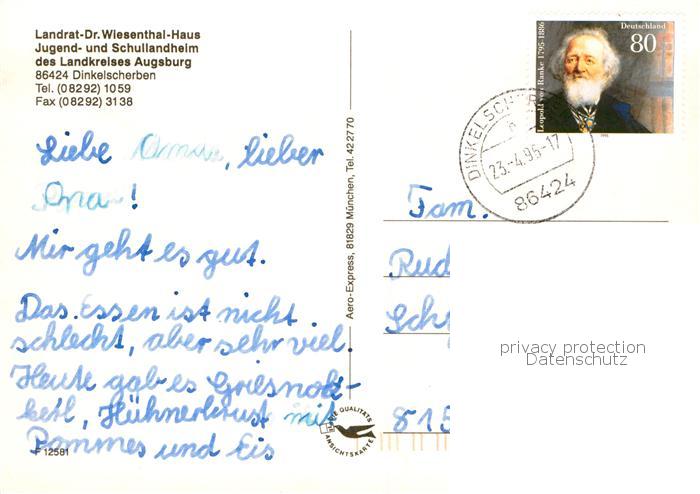 Landrat-Dr. Wiesenthal-Haus
Jugend- und Schullandheim
des Landkreises Augsburg
86424 Dinkelscherben
Tel. (08292) 1059
Fax (08292) 3138
Liebe Oma, lieber
Opa!
Mir geht es gut.
Das Essen ist nicht
schlecht, aber sehr viel.
Heute gab es Griesnok-
kerl, Hühnerbrust mit
Pommes und Eis
F 12581
Aero-Express, 81829 München, Tel. 42 27 70
DIE QUALITÄTS
ANSICHTSKARTE
Deutschland
80
Leopold von Ranke 1795-1886
23.-4.96-17
86424
Fam.
Rud
815
privacy protection
Datenschutz